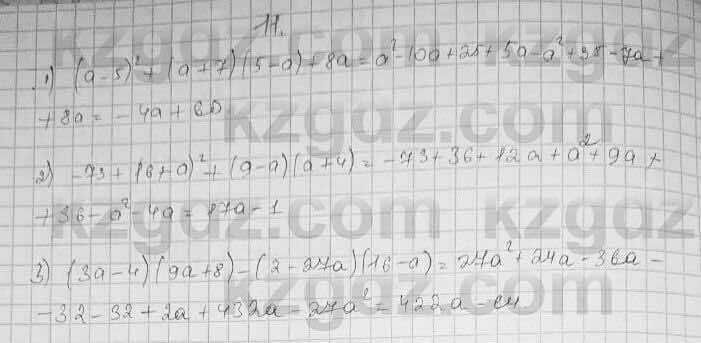 11.
1) (a-5)²+(a+7)(5-a)+8a=a²-10a+25+5a-a²+35-7a+
+8a=-4a+60
2) -73+(6+a)²+(9-a)(a+4)=-73+36+12a+a²+9a+
+36-a²-4a=17a-1
3) (3a-4)(9a+8)-(2-27a)(16-a)=27a²+24a-36a-
-32-32+2a+432a-27a²=422a-64
kzgdz.com
kzgdz.com
kzgdz.com
kzgdz.com